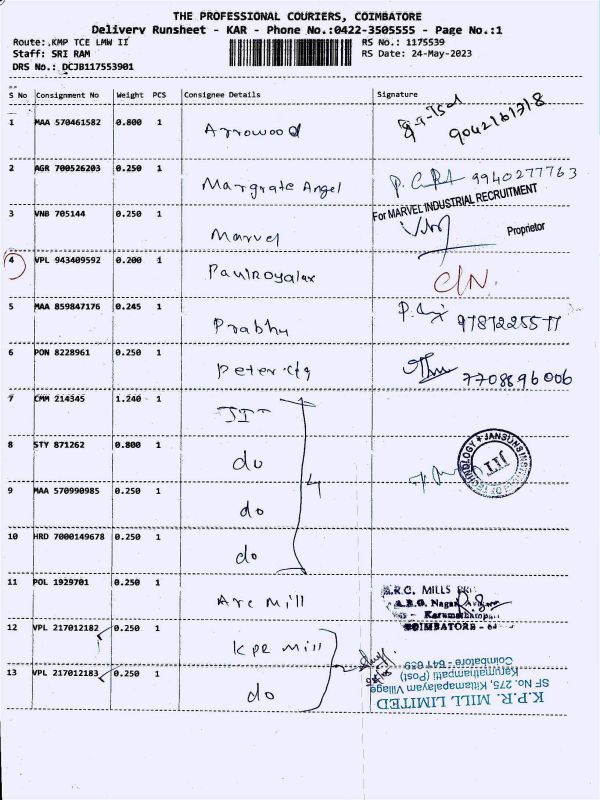 THE PROFESSIONAL COURIERS, COIMBATORE
Delivery Runsheet - KAR - Phone No.:0422-3505555 - Page No.:1
Route:.KMP TCE LMW II
RS No.: 1175539
Staff: SRI RAM
RS Date: 24-May-2023
DRS No.: DCJB117553901
S No Consignment No Weight PCS Consignee Details Signature
1 MAA 570461582 0.800 1 Arrowood 9042161718
2 AGR 700526203 0.250 1 Margrate Angel 9940277763
For MARVEL INDUSTRIAL RECRUITMENT
3 VNB 705144 0.250 1 Marvel
Proprietor
4 VPL 943409592 0.200 1 Paulroyalax C/N.
5 MAA 859847176 0.245 1 Prabhu 9787225577
6 PON 8228961 0.250 1 Peter 7708896006
7 CMM 214345 1.240 1 JIT
8 STY 871262 0.800 1 do
JIT
9 MAA 570990985 0.250 1 do
10 HRD 7000149678 0.250 1 do
4
11 POL 1929701 0.250 1 Arc Mill
A.R.C. MILLS
A.B.G. Nagar
Karumathampatti
COIMBATORE - 64
12 VPL 217012182 0.250 1 KPR Mill
13 VPL 217012183 0.250 1 do
K.P.R. MILL LIMITED
SF No. 275, Kittampalayam Village
Karumathampatti (Post)
Coimbatore - 641 659